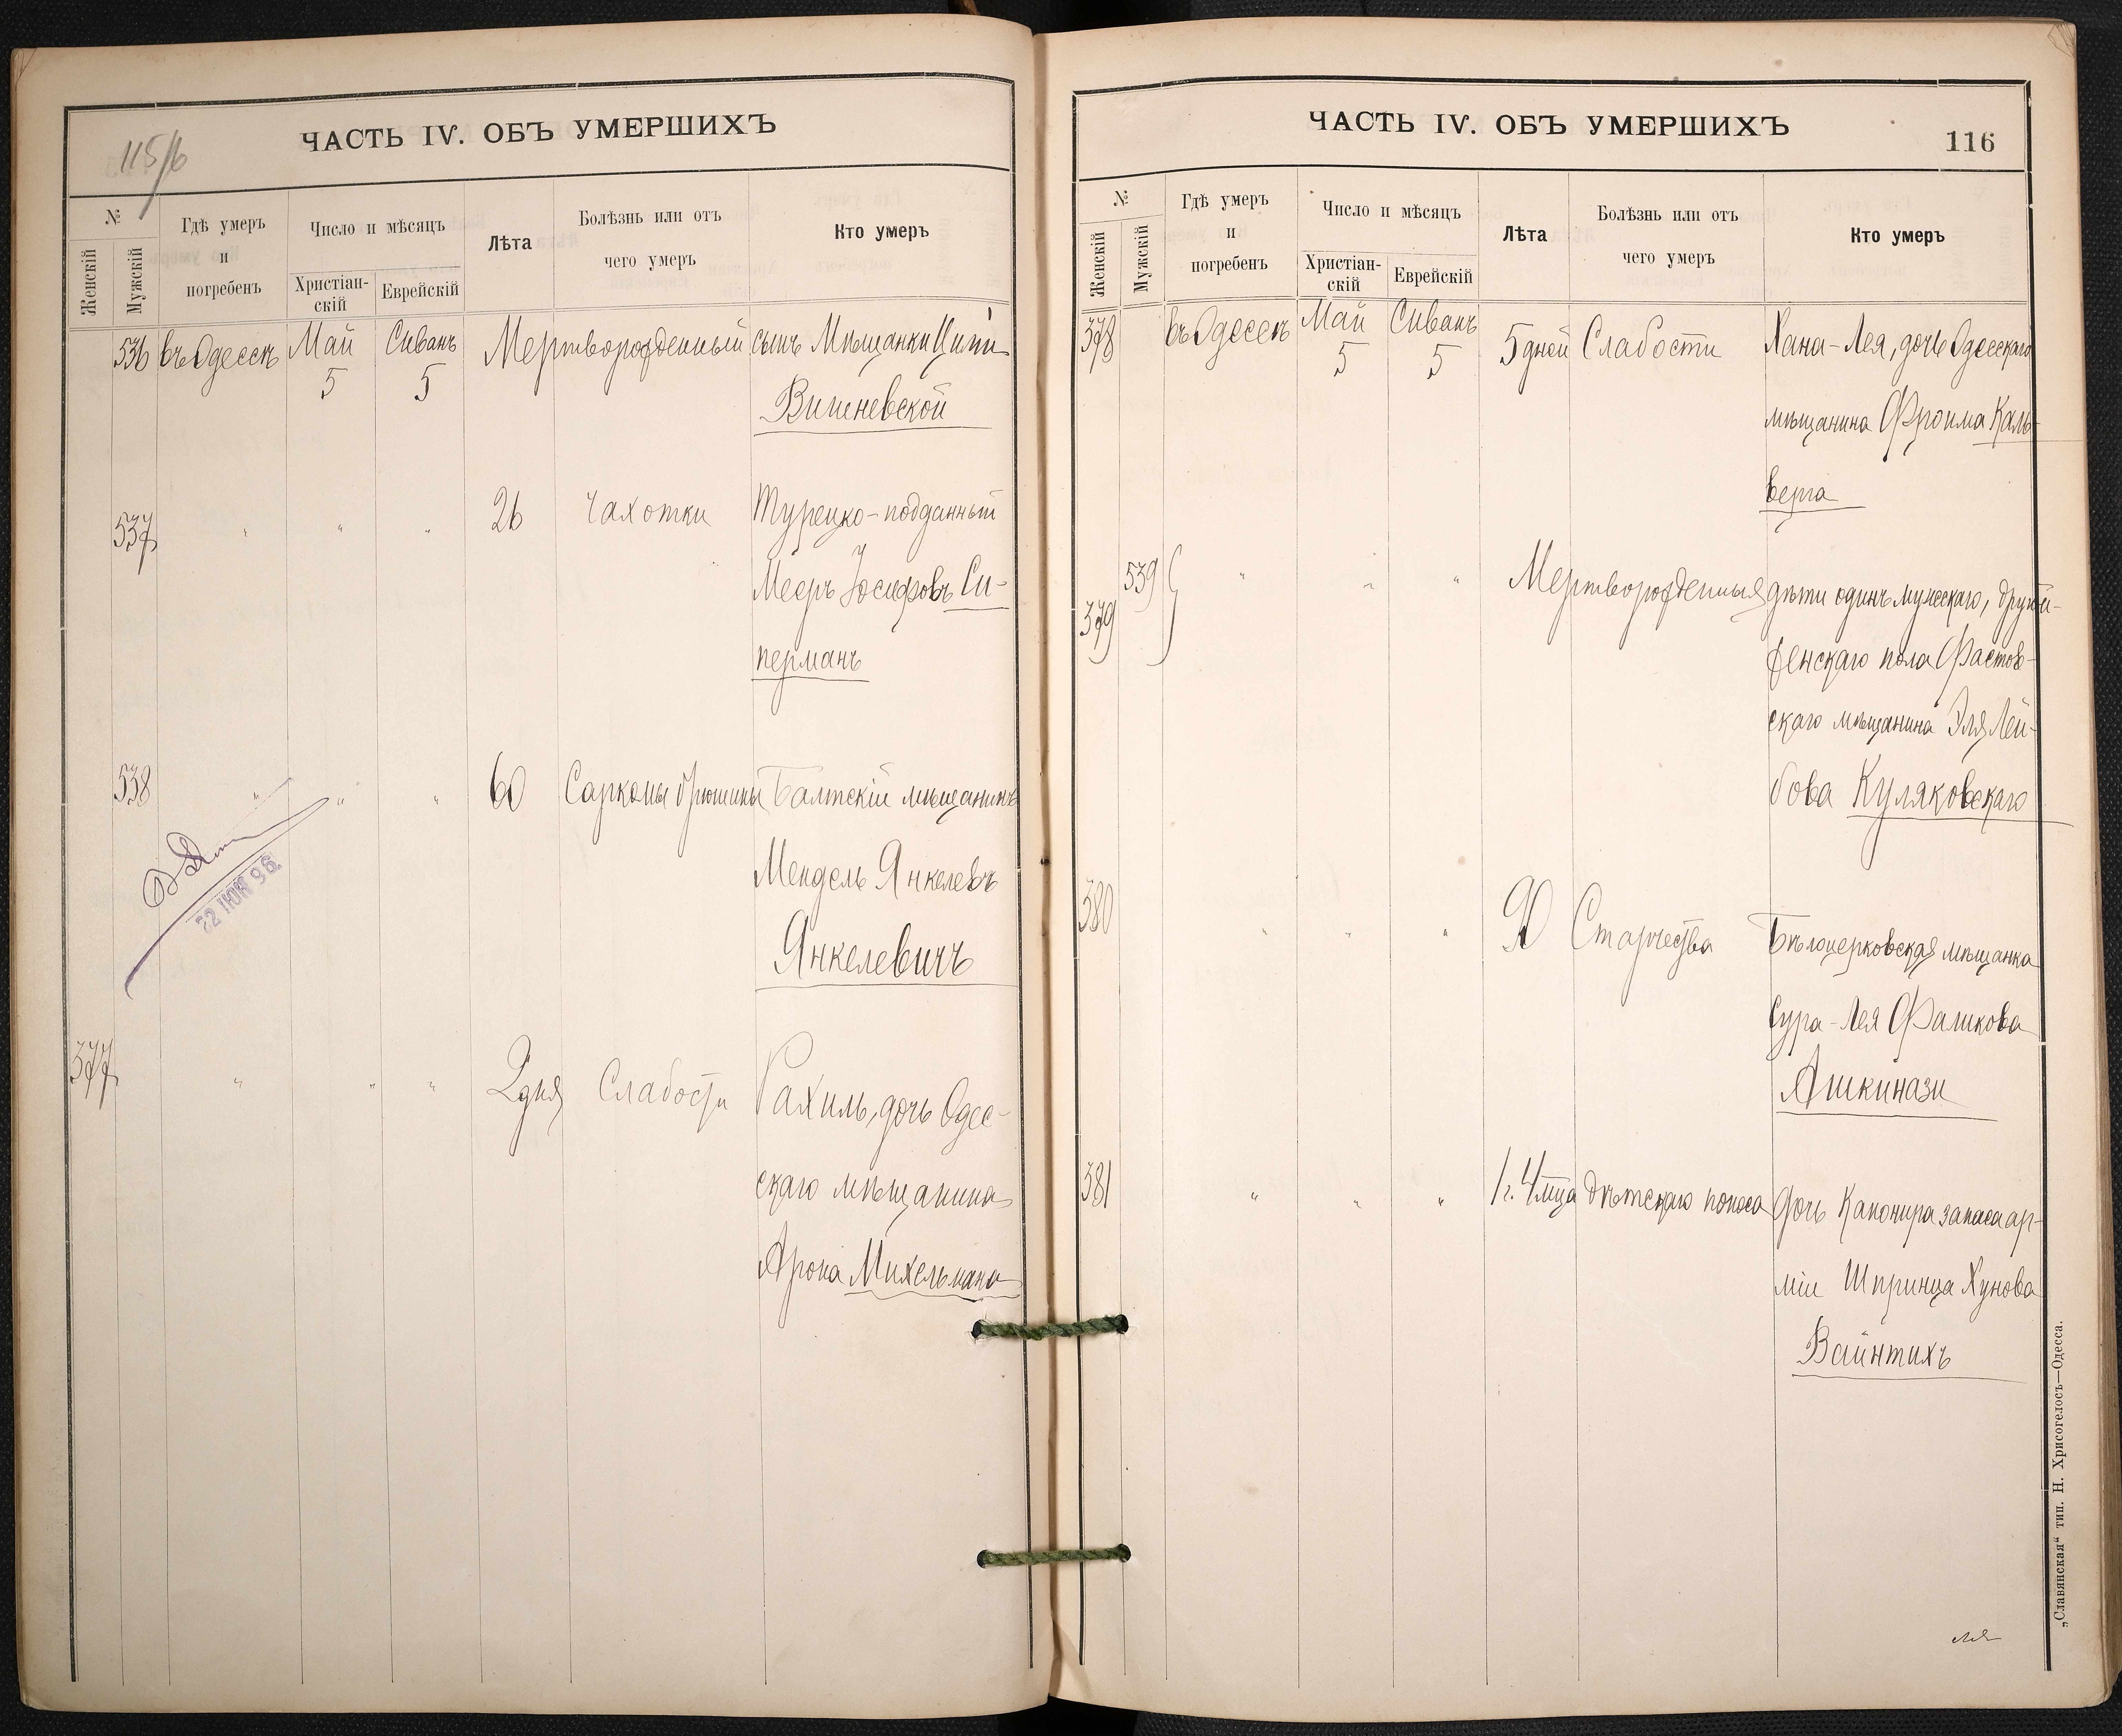 115/6
ЧАСТЬ IV. ОБЪ УМЕРШИХЪ
№
Женскій
Мужскій
Гдѣ умеръ
и
погребенъ
Число и мѣсяцъ
Христіан-
скій
Еврейскій
Лѣта
Болѣзнь или отъ
чего умеръ
Кто умеръ
536 въ Одессѣ Май Сиванъ Мертворожденный сынъ Мѣщанки Ципи
5 5 Вишневской
537 " " " 26 Чахотки Турецко-подданный
Мееръ Іосифовъ Си-
перманъ
538 " " " 60 Саркомы брюшины Балтскій мѣщанинъ
Мендель Янкелевъ
Янкелевичъ
22 ІЮН 96
377 " " " 2 дня Слабости Рахиль, дочь Одес-
скаго мѣщанина
Арона Михельмана
ЧАСТЬ IV. ОБЪ УМЕРШИХЪ
116
№
Женскій
Мужскій
Гдѣ умеръ
и
погребенъ
Число и мѣсяцъ
Христіан-
скій
Еврейскій
Лѣта
Болѣзнь или отъ
чего умеръ
Кто умеръ
378 въ Одессѣ Май Сиванъ 5 дней Слабости Хана-Лея, дочь Одесскаго
5 5
мѣщанина Фроима Каль-
верга
539 " " " Мертворожденныя дѣти одинъ мужескаго, другой-
379 женскаго пола Фастов-
скаго мѣщанина Эля Лей-
бова Куляковскаго
380 " " " 90 Старчества Бѣлоцерковская мѣщанка
Сура-Лея Фаликова
Ашкинази
381 " " " 1 г. 4 мца дѣтскаго поноса Дочь Канонира запаса ар-
міи Шпринца Хунова
Вайнтихъ
„Славянская“ тип. Н. Хрисогелосъ—Одесса.